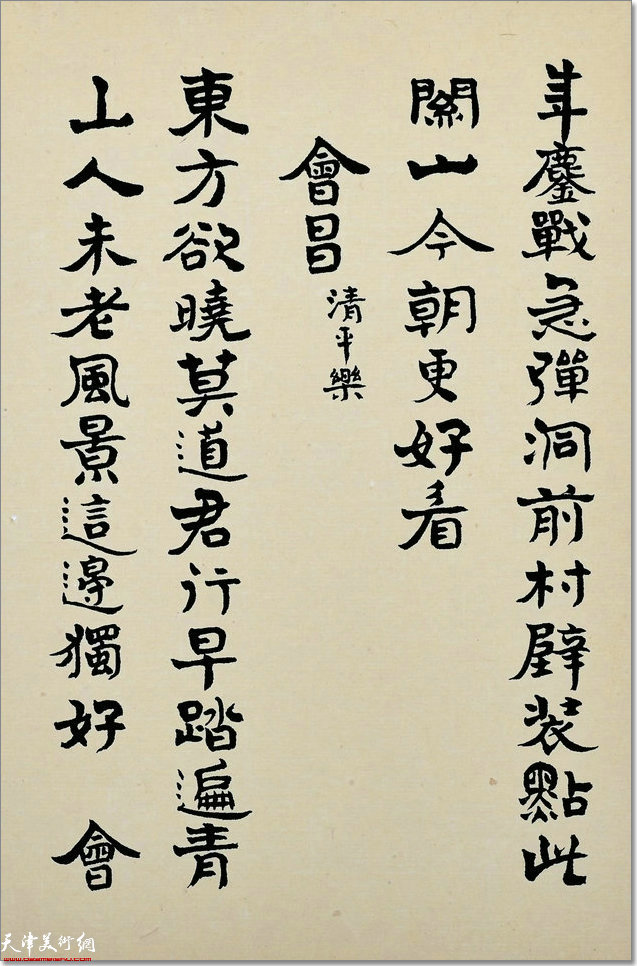 年鏖戰急彈洞前村壁装點此
關山今朝更好看
會昌
清平樂
東方欲曉莫道君行早踏遍青
山人未老風景這邊獨好 會
天津美術網